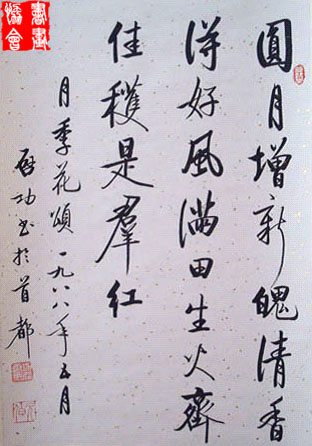 圓月增新魄清香
得好風滿田生火齊
佳穫是羣紅
月季花頌一九八八年五月
啟功书於首都
書畫
協會